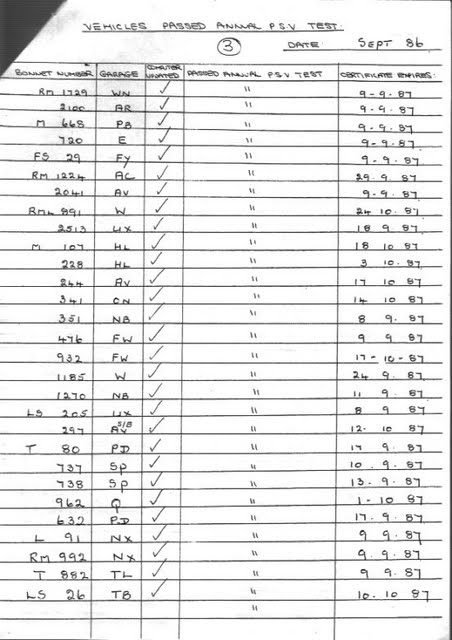 VEHICLES PASSED ANNUAL P.S.V TEST.
3 DATE: SEPT 86
BONNET NUMBER GARAGE COMPUTER UPDATED PASSED ANNUAL P.S.V TEST CERTIFICATE EXPIRES:
RM 1729 WN ✓ " 9-9.87
2100 AR ✓ " 9-9.87
M 668 PB ✓ " 9-9.87
720 E ✓ " 9-9.87
FS 29 FY ✓ " 9-9.87
RM 1224 AC ✓ " 29.9.87
2041 AV ✓ " 9-9.87
RML 891 W ✓ " 24 10.87
2513 UX ✓ " 18 9.87
M 107 HL ✓ " 18 10 87
228 HL ✓ " 3 10.87
244 AV ✓ " 17 10 87
341 ON ✓ " 14 10 87
351 NB ✓ " 8 9.87
476 FW ✓ " 9 9 87
932 FW ✓ " 17-10-87
1185 W ✓ " 24 9.87
1270 NB ✓ " 11 9.87
LS 205 UX ✓ " 8 9 87
297 AV S/B ✓ " 12.10 87
T 80 PD ✓ " 17 9.87
737 SP ✓ " 10.9.87
738 SP ✓ " 13.9.87
962 Q ✓ " 1-10 87
632 PD ✓ " 17.9.87
L 91 NX ✓ " 9 9.87
RM 992 NX ✓ " 9 9.87
T 882 TL ✓ " 9 9.87
LS 26 TB ✓ " 10.10 87
"